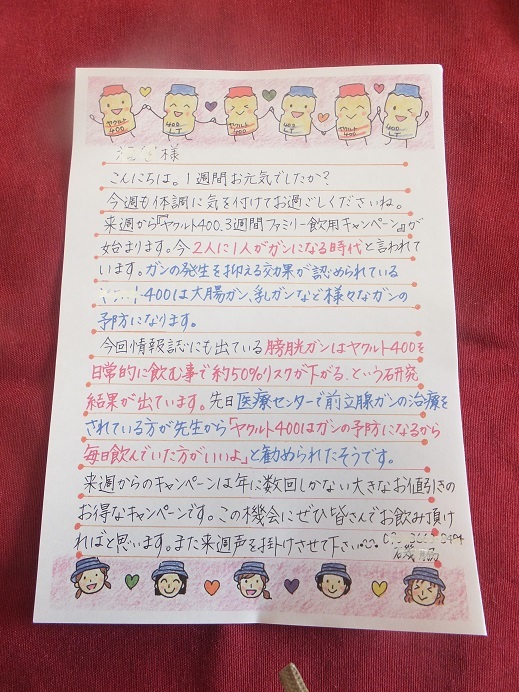 ヤクルト 400
400 LT
ヤクルト 400
400 LT
ヤクルト 400
400 LT
様
こんにちは。1週間お元気でしたか?
今週も体調に気を付けてお過ごしくださいね。
来週から『ヤクルト400.3週間ファミリー飲用キャンペーン』が
始まります。今2人に1人がガンになる時代と言われて
います。ガンの発生を抑える効果が認められている
400は大腸ガン、乳ガンなど様々なガンの
予防になります。
今回情報誌にも出ている膀胱ガンはヤクルト400を
日常的に飲む事で約50%リスクが下がる、という研究
結果が出ています。先日医療センターで前立腺ガンの治療を
されている方が先生から「ヤクルト400はガンの予防になるから
毎日飲んでいた方がいいよ」と勧められたそうです。
来週からのキャンペーンは年に数回しかない大きなお値引きの
お得なキャンペーンです。この機会にぜひ皆さんでお飲み頂け
ればと思います。また来週声を掛けさせて下さい